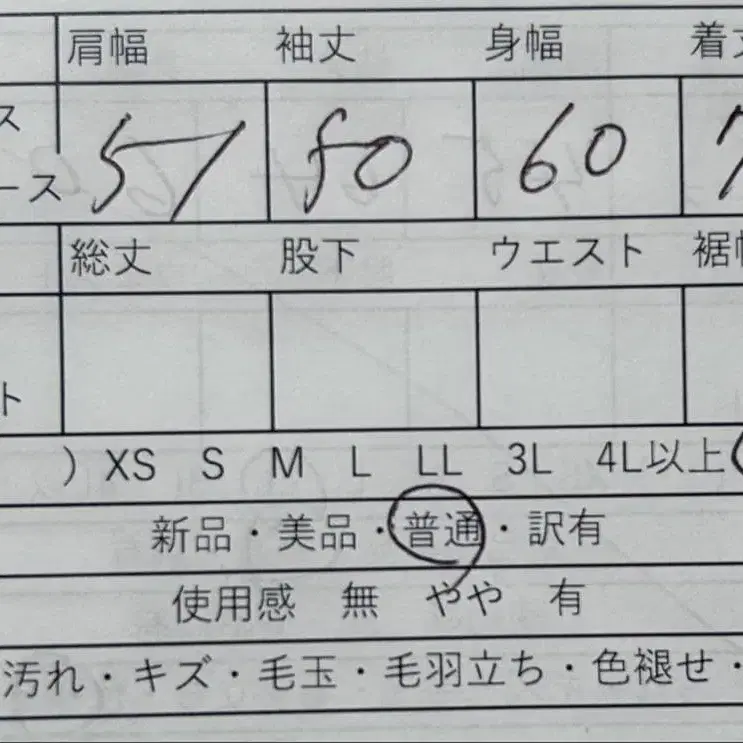 肩幅 袖丈 身幅 着丈
ス
ース 51 50 60 7
総丈 股下 ウエスト 裾
ト
) XS S M L LL 3L 4L以上
新品・美品・普通・訳有
使用感 無 やや 有
汚れ・キズ・毛玉・毛羽立ち・色褪せ・